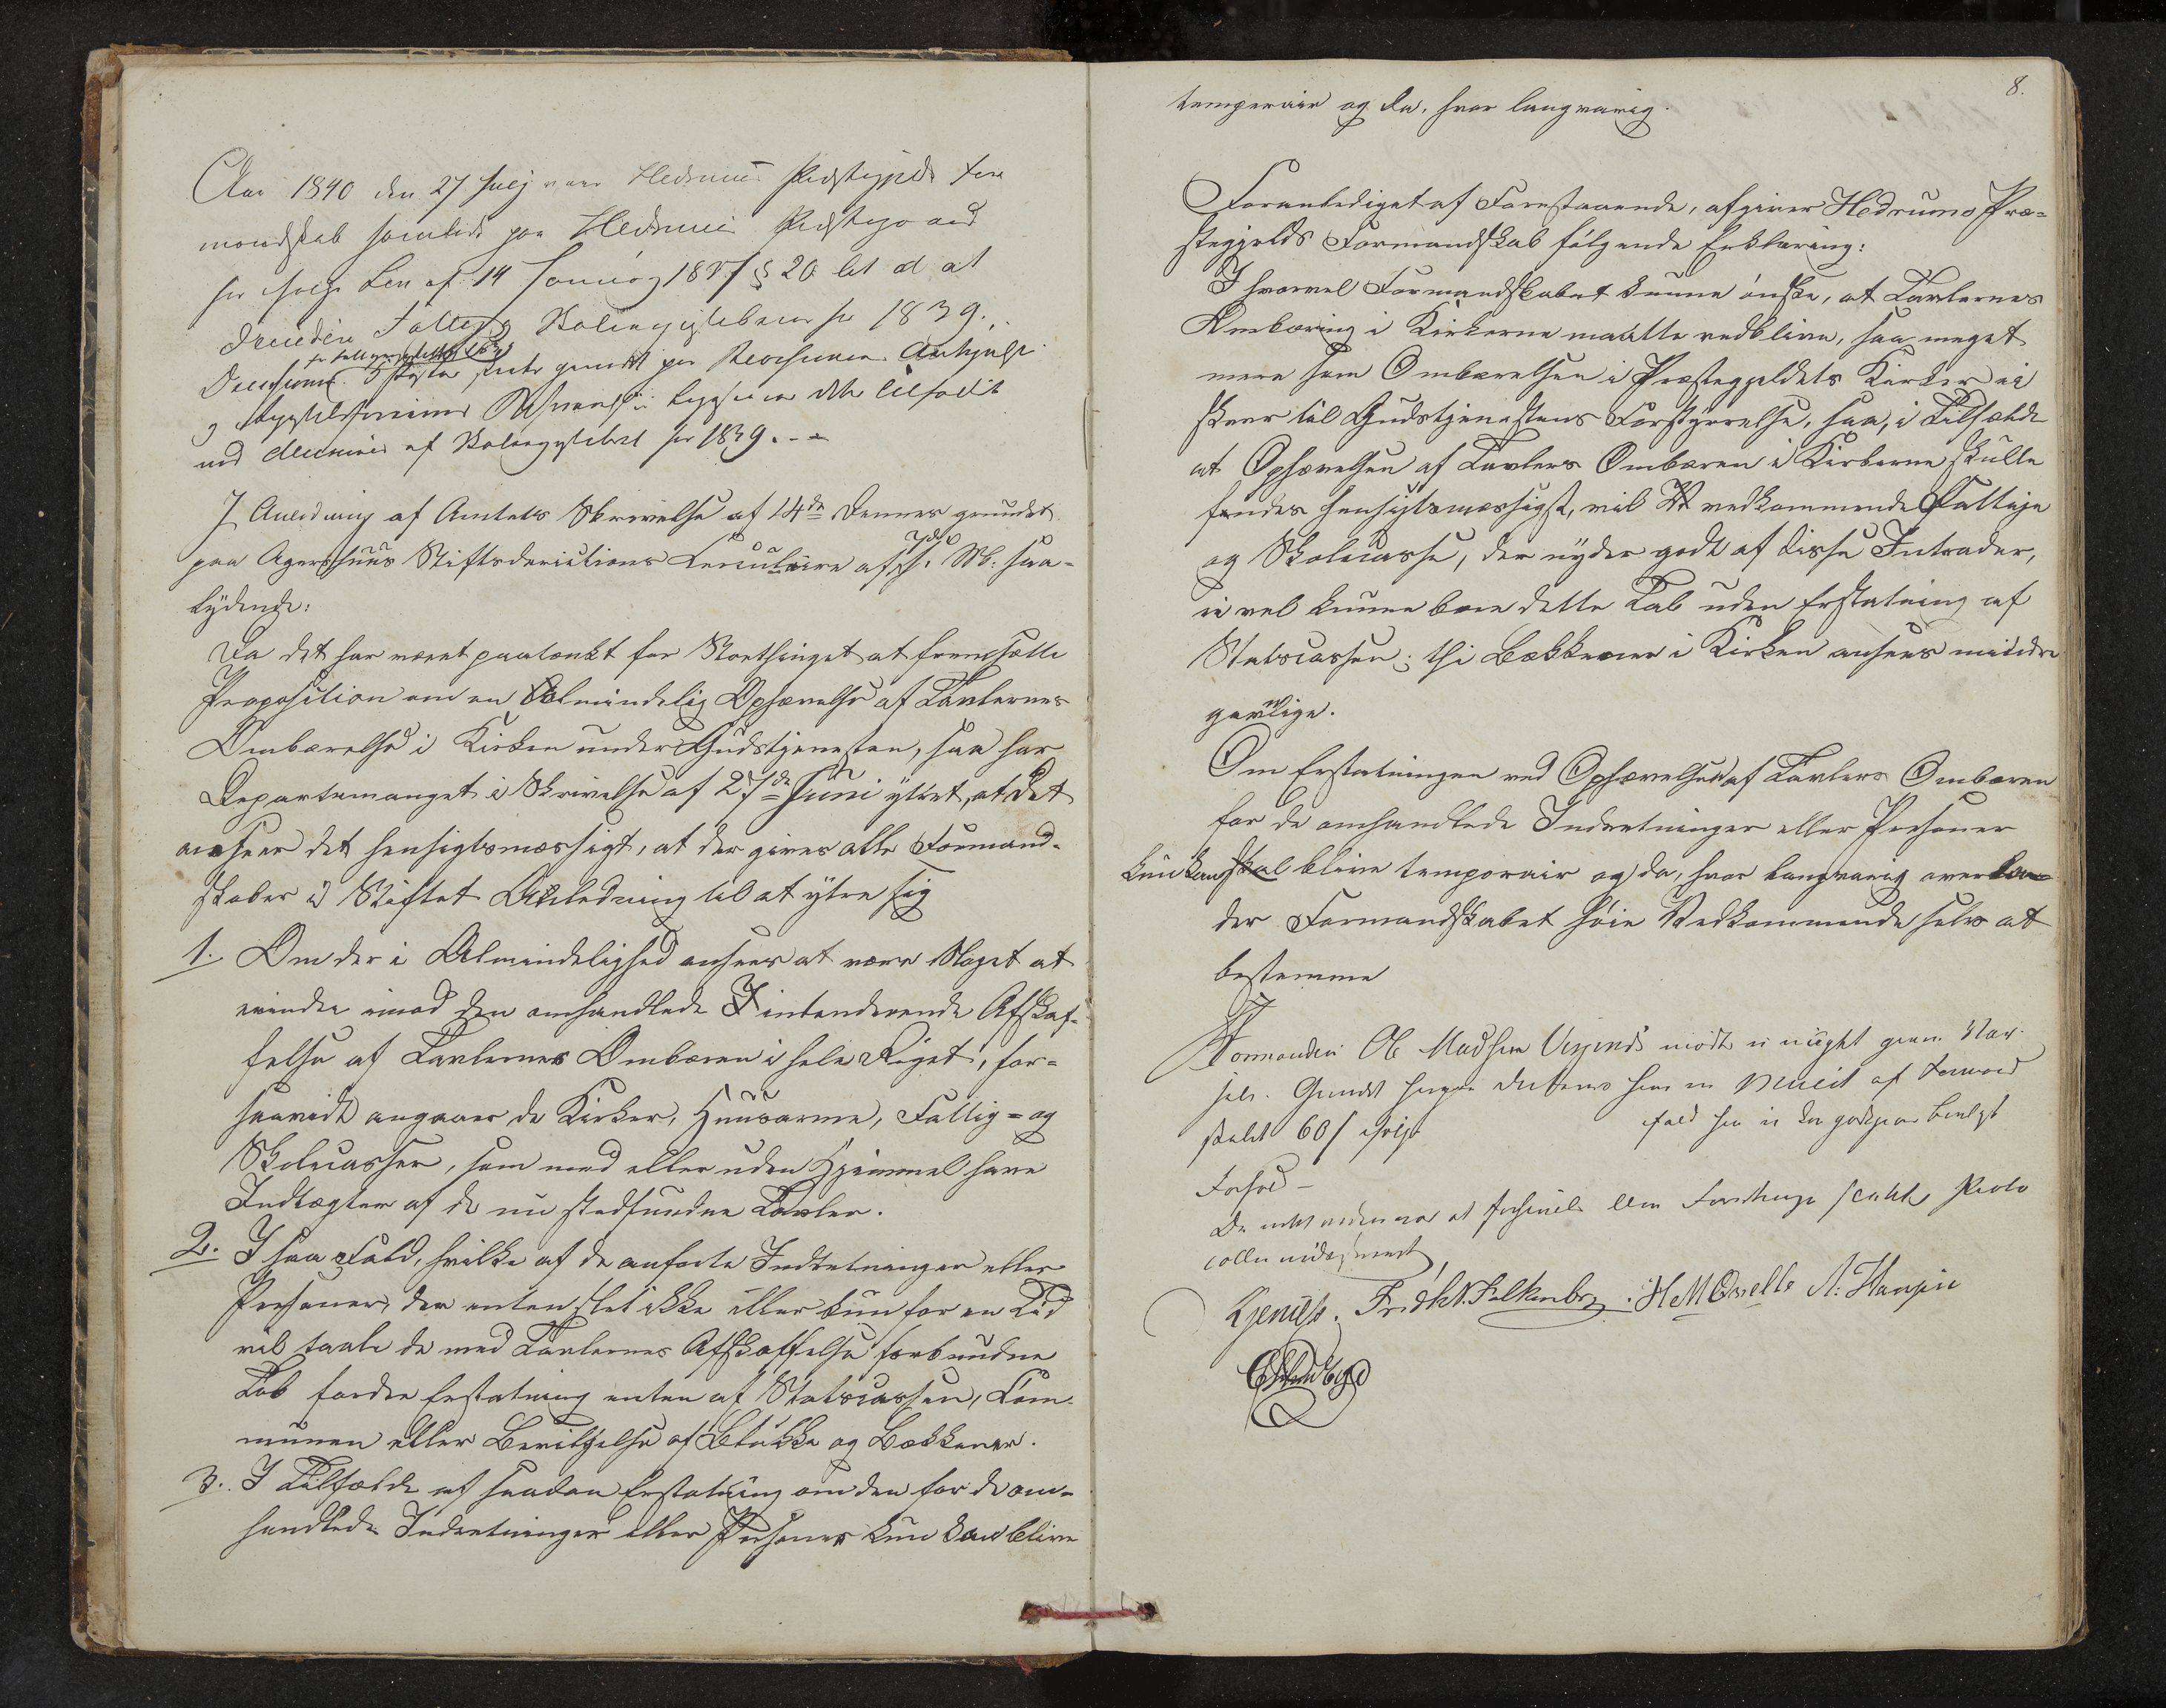 Aar 1840 den 27 Julj var Hedrums Præstegjelds For
mandskab samlede paa Hedrums Præstegaard
for ifølge Lov af 14 Januar 1837 § 20 lit d at
decidere Fattig Skoleregnskaberne for 1839.
Decisionen
ved Decisionen af Skoleregnskabet for 1839.
I Anledning af Amtets Skrivelse af 14de Dennes grundet
paa Agershuus Stiftsdirections Circulaire af 7de s. M. saa-
lydende:
Da det har været paatænkt for Storthinget at fremsætte
Proposition om en Almindelig Ophævelse af Tavlernes
Ombærelse i Kirken under Gudstjenesten, saa har
Departementet i Skrivelse af 27de Juni yttret, at det
anseer det hensigtsmæssigt, at der gives alle Formand-
skaber i Stiftet Anledning til at ytre sig
1. Om der i Almindelighed ansees at være Noget at
erindre imod den omhandlede intenderende Afskaf-
felse af Tavlernes Ombæren i hele Riget, for-
saavidt angaaer de Kirker, Huusarme, Fattig- og
Skolecasser, som med eller uden Hjemmel have
Indtægter af de nu stedfundne Tavler.
2. I saa Fald, hvilke af de anførte Indretninger eller
Personer, der enten slet ikke eller kun for en Tid
vil taale de med Tavlernes Afskaffelse forbundne
Tab fordre Erstatning enten af Statscassen, Com-
munen eller Bevilgelse af Blokke og Bækkener.
3. I Tilfælde af saadan Erstatning om den for de om-
handlede Indretninger eller Personer kun kan blive
8.
temporair og da, hvor langvarig.
Foranlediget af Forestaaende, afgiver Hedrums Præ-
stegjelds Formandskab følgende Erklæring:
Ihvorvel Formandskabet kunne ønske, at Tavlernes
Ombæring i Kirkerne maatte vedblive, saa meget
mere som Ombærelsen i Præstegjeldets Kirker ei
skeer til Gudstjenestens Forstyrrelse, saa, i Tilfælde
at Ophævelsen af Tavlers Ombæren i Kirkerne skulle
findes hensigtsmæssigst, vil vedkommende Fattige
og Skolecasse, der nyder godt af disse Intrader,
ei vel kunne bære dette Tab uden Erstatning af
Statscassen; thi Bækkener i Kirken ansees mindre
gavnlige.
Om Erstatningen ved Ophævelsen af Tavlers Ombæren
for de omhandlede Indretninger eller Personer
kun kan skal blive temporair og da, hvor langvarig overlader
der Formandskabet høie Vedkommende selv at
bestemme
Formanden Ole Madsen mødte ei
Da intet videre var at foretage Proto
collen
Fridkh. Falkenberg